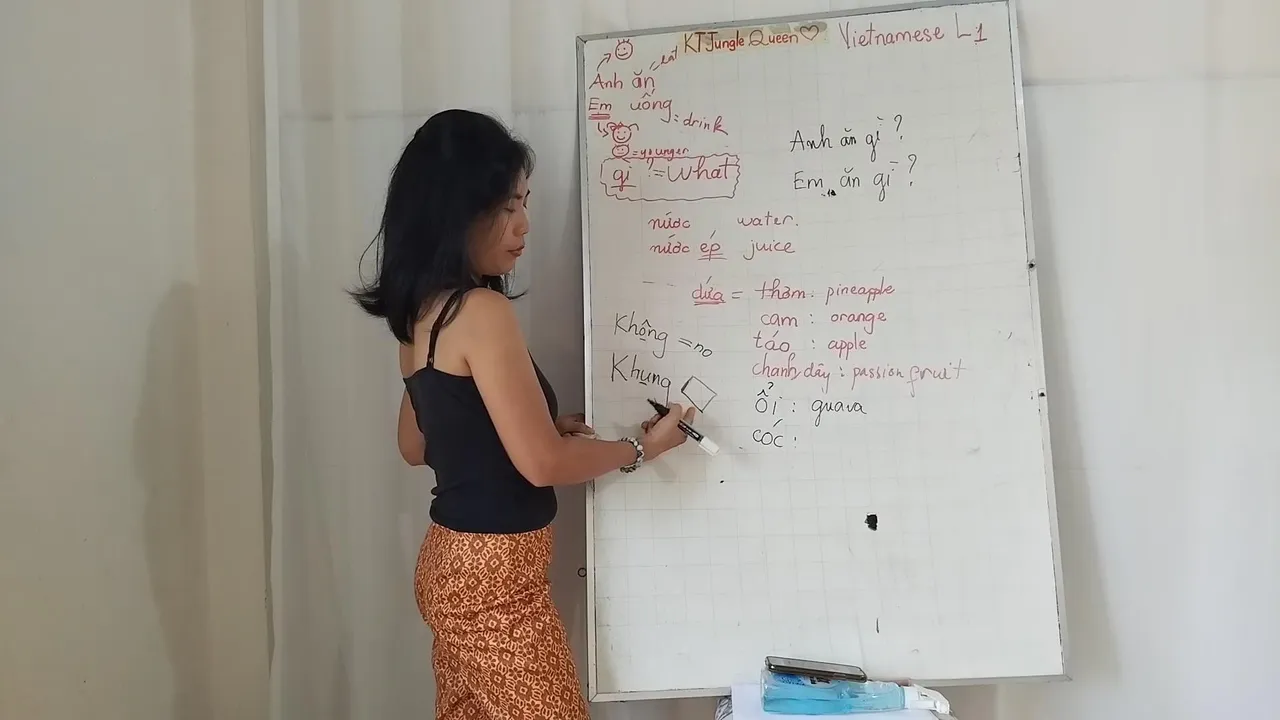 KTJungle Queen♡ Vietnamese L1
Anh ăn eat
Em uống = drink
= younger
gì ? = what
Anh ăn gì ?
Em ăn gì ?
nước water.
nước ép juice
-- dứa = thơm : pineapple
cam : orange
táo : apple
chanh dây : passion fruit
Không = no
Khung
Ổi : guava
cóc :